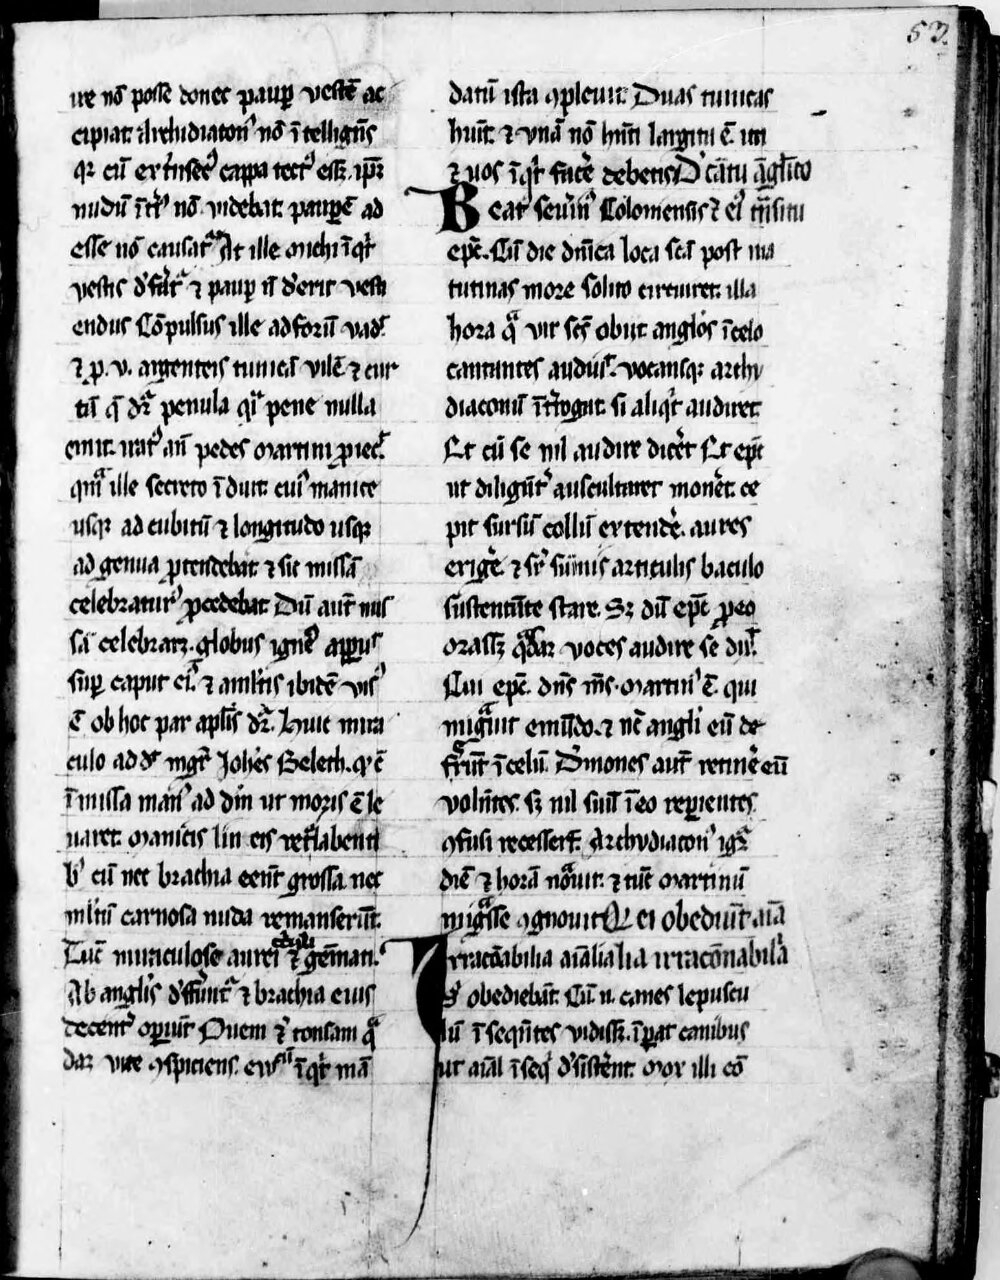 53.
ire nō posse donec paup̲ vestē ac
cipiat. Archidiacon᷒ nō ītelligēs
qꝛ cū extrīsec᷒ cappa tect᷒ esꝫ. ip̄m
nudū īt᷒ nō videbat. paupē ad
esse nō causat᷒. At ille michi īqͥt
vestis d̓fāt᷒ ⁊ paup̲ n̄ d̓erit vesti
endus Cōpulsus ille ad forū vad᷒
⁊ p̲. v. argenteis tunicā vilē ⁊ cur
tā q̄ dr̄ penula qͣi pene nulla
emit. irat᷒ an̄ pedes Martini ꝓiec̄
qͣm ille secreto īduit. cui᷒ manice
usqꝫ ad cubitū ⁊ longitudo usqꝫ
ad genua ꝓtendebāt ⁊ sic missā
celebratur᷒ ꝓcedebat Dū aut̄ mis
sā celebraꝫ. globus igne᷒ appu᷒
sup̲ caput ei᷒. ⁊ a ml̄tis ibidē vis᷒
ē ob hoc par apl̄is dr̄. Huic mira
culo add᷒ mgr̄ Joh̄es Beleth. qꝛ cū
ī missa man᷒ ad dm̄ ut moris ē le
uaret. manicis lin eis ret͛labenti
b᷒ cū nec brachia eēnt grossa nec
ml̄tū carnosa nuda remanserūt.
circuli
Tūc miraculose aurei ⁊ gēman.
Ab angl̄is d̓ffūnt᷒ ⁊ brachia eius
decent᷒ operiūt Ouem ⁊ tonsam qͣ
daꝫ vice ꝯspiciens. ew᷒ īqͥt mā
datū ista ꝯpleuit. Duas tunicas
huīt. ⁊ unā nō hn̄ti largitu ē. ita
⁊ uos īqͥt facē debetis D̓ cātu āgl̄ico
Beat᷒ seuin᷒ Coloniensis ⁊ ei᷒ trāsitu
ep̄c. Cū die dn̄ica loca scā post ma
tutinas more solito circuiret. illa
hora qͣ vir scs̄ obiit anglos ī celo
cantantes audiu̾. vocansqꝫ archy
diaconū īt͛rogat. si aliqͥt audiret.
Et cū se nil audire dicēt Et ep̄c
ut diligēt᷒ auscultaret monēt. ce
pit sursū collū extendē. aures
erigē ⁊ sr̄ sūmis articulis baculo
sustentāte stare. Sꝫ dū ep̄c ꝓ eo
orasꝫ qͣsdaꝫ voces audire se dix̄.
Cui ep̄c. dn̄s m̄s. martin᷒ ē. qui
migͣuit emūdo. ⁊ nc̄ angli eū de
ferūt ī celū. Dēmones aut̄ retinē eū
volūtes. sꝫ nil suū ī eo reperientes
ꝯfusi recesserūt. Archydiacon᷒ igr̄
diē ⁊ horā nōuit. ⁊ tūc martinū
migͣsse ꝯgnouit Q ei obediūt aīā
Irracōabilia aīalia lia irracōnabilā
ei obediebāt. Cū n. canes lepuscu
lū īseqn̄tes vidisꝫ. īp̲at canibus
ut aīal īseqͥ d̓sist͛ent. Mox illi cō